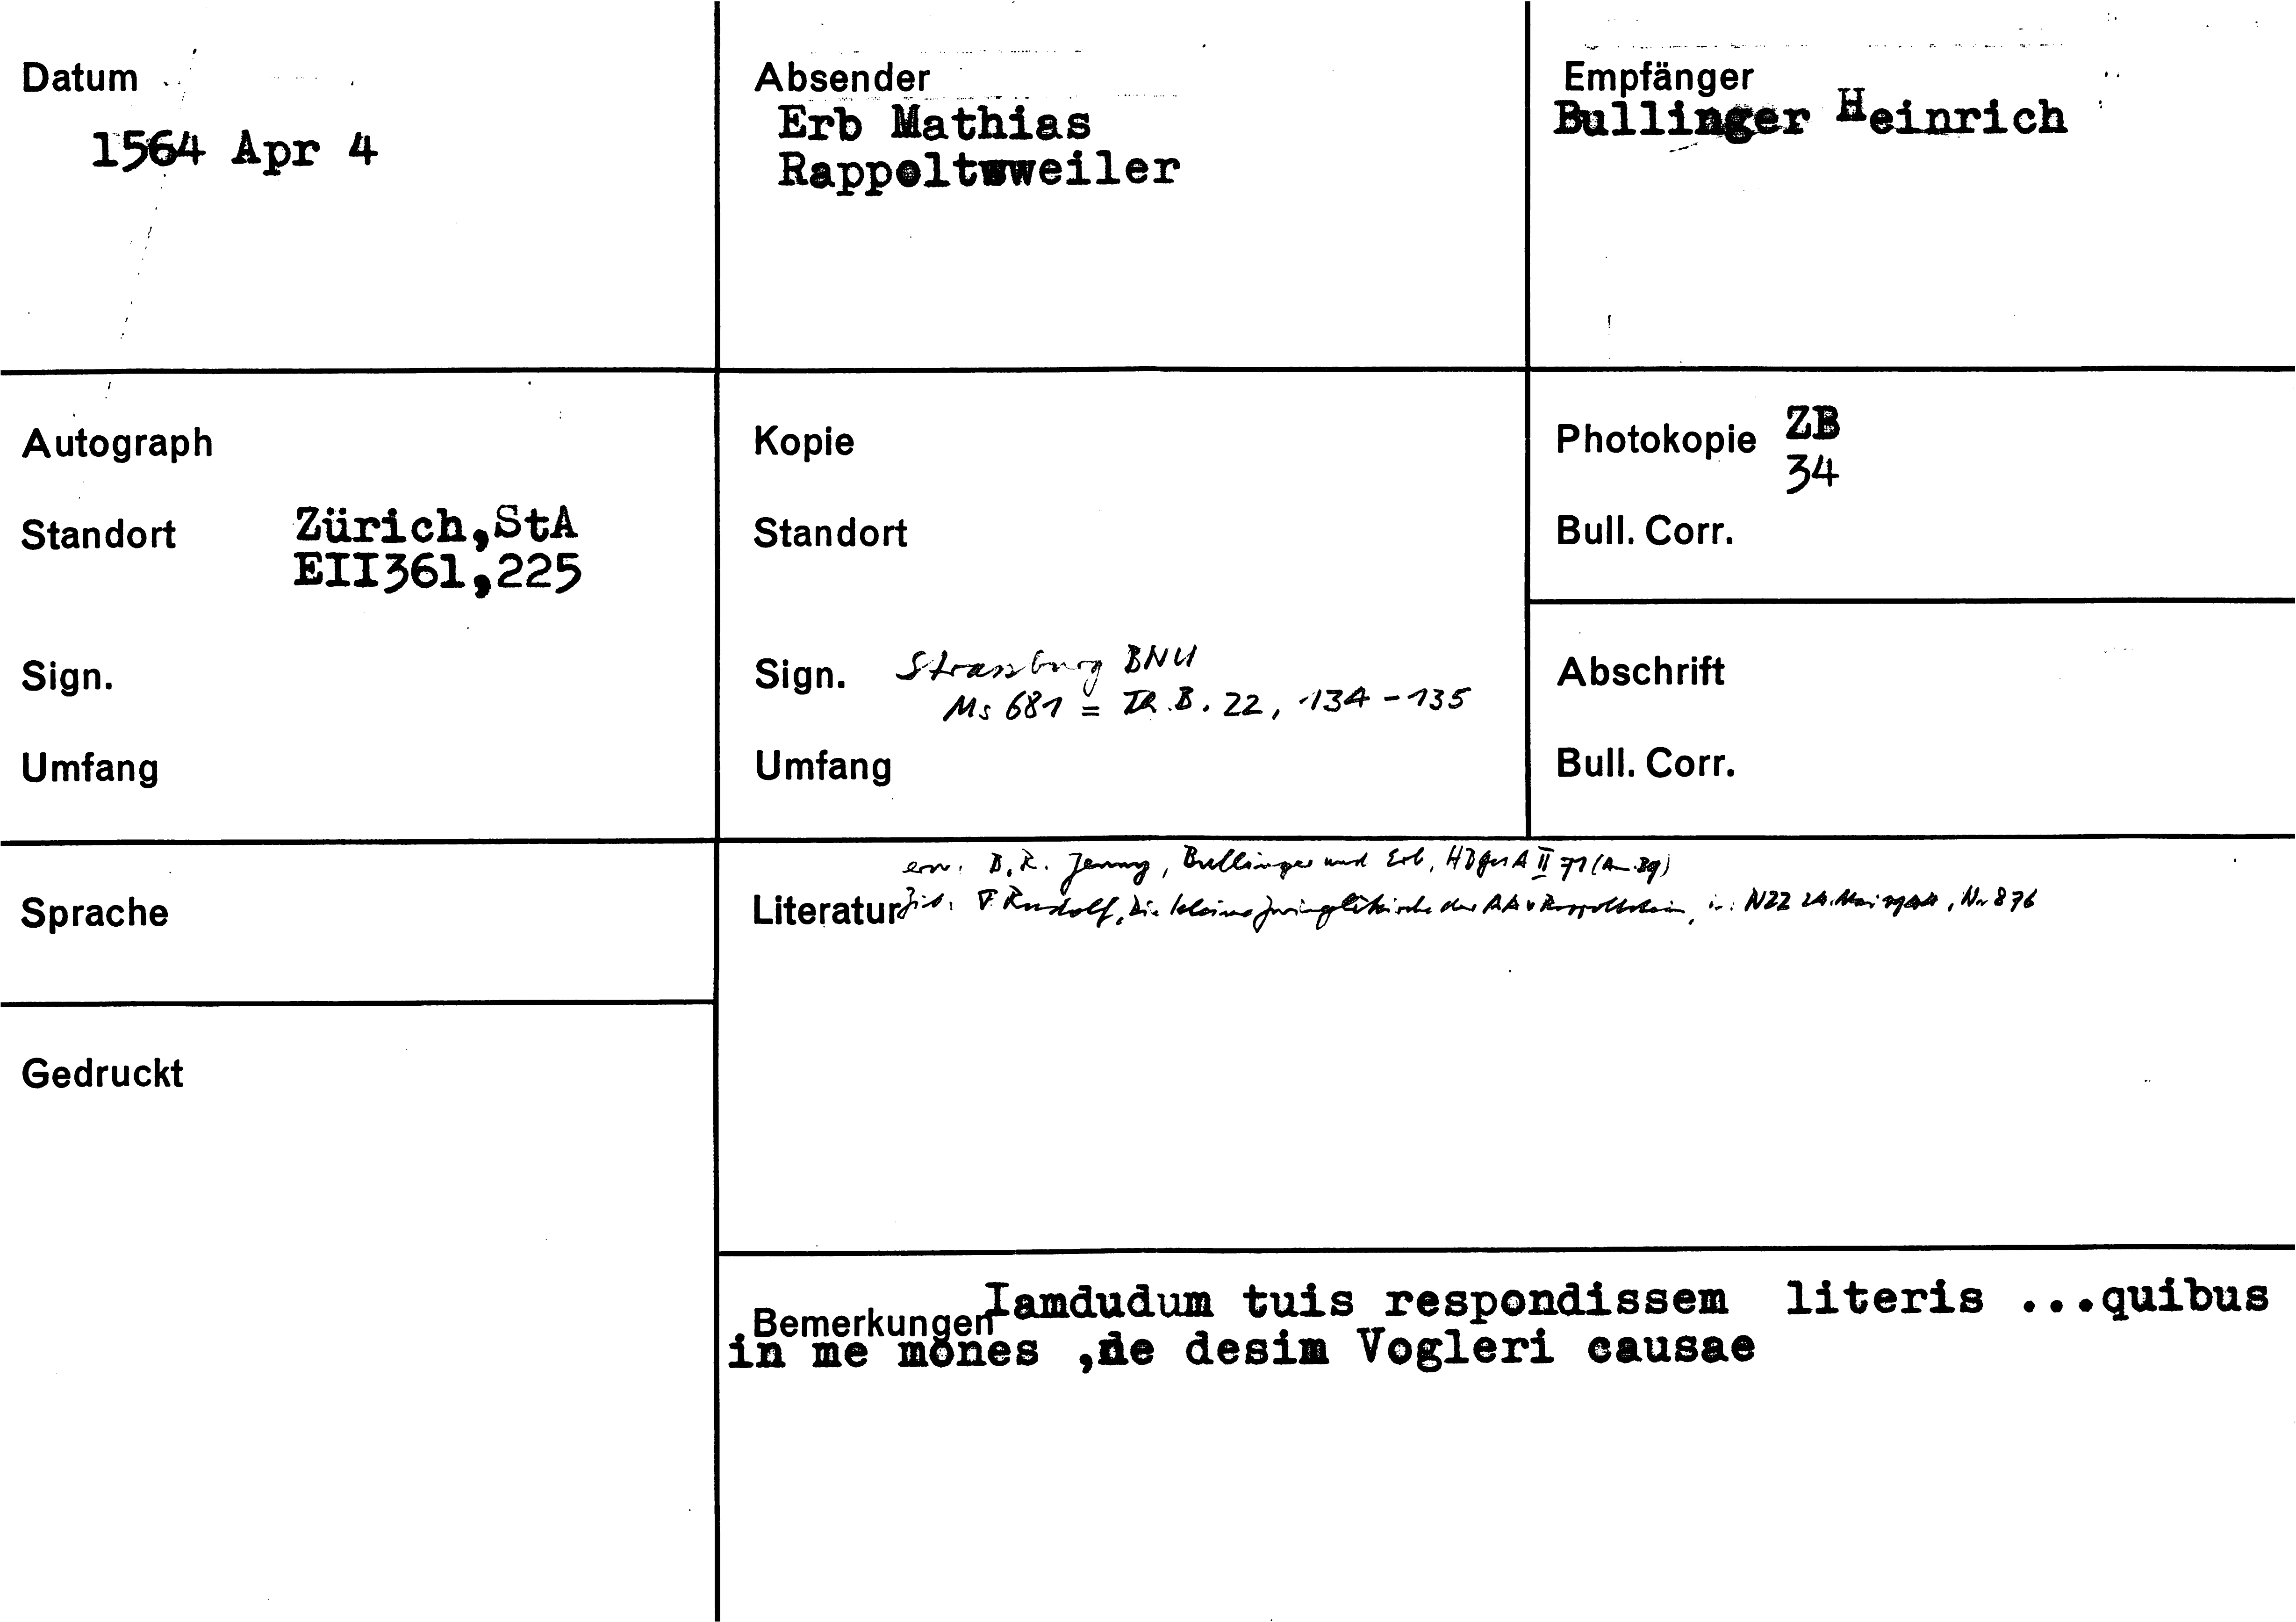 Datum
1564 Apr 4
Absender
Erb Mathias
Rappoltsweiler
Empfänger
Bullinger Heinrich
Autograph
Standort Zürich,StA
EII361,225
Sign.
Umfang
Kopie
Standort
Sign. Strassburg BNU
Ms 681 = Th.B. 22, 134-135
Umfang
Photokopie ZB
34
Bull. Corr.
Abschrift
Bull. Corr.
Sprache
erw. B.R. Jenny, Bullinger und Erb, HBGesA II 71
Literatur Zit. F. Rudolf, Die kleine Zwinglikirche der in: NZZ 24. Mai Nr 876
Gedruckt
Bemerkungen Iamdudum tuis respondissem literis ...quibus
in me mones ,ne desim Vogleri causae